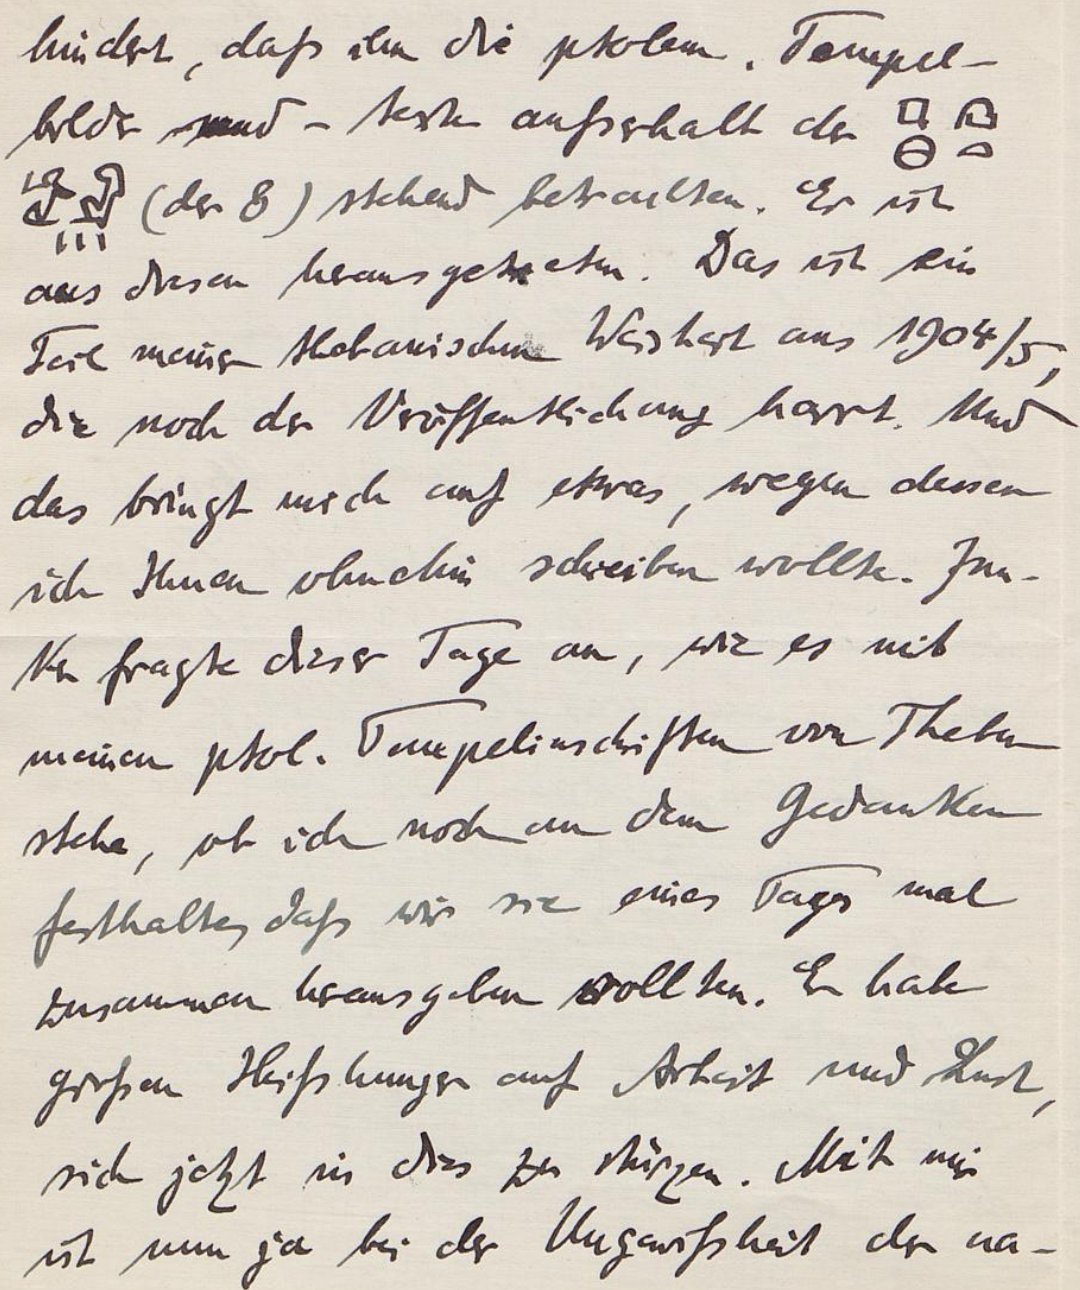 hindert, daß ihn die ptolem. Tempel-
bilder und -texte außerhalb der
(der 8) stehend betrachten. Er ist
aus diesen herausgetreten. Das ist ein
Teil meiner thebanischen Weisheit aus 1904/5,
die noch der Veröffentlichung harrt. Und
das bringt mich auf etwas, wegen dessen
ich Ihnen ohnehin schreiben wollte. Jun-
ker fragte dieser Tage an, wie es mit
meinen ptol. Tempelinschriften von Theben
stehe, ob ich noch an dem Gedanken
festhalte, daß wir sie eines Tages mal
zusammen herausgeben wollten. Er habe
großen Heißhunger auf Arbeit und Lust,
sich jetzt in dies zu stürzen. Mit mir
ist nun ja bei der Ungewißheit der na-